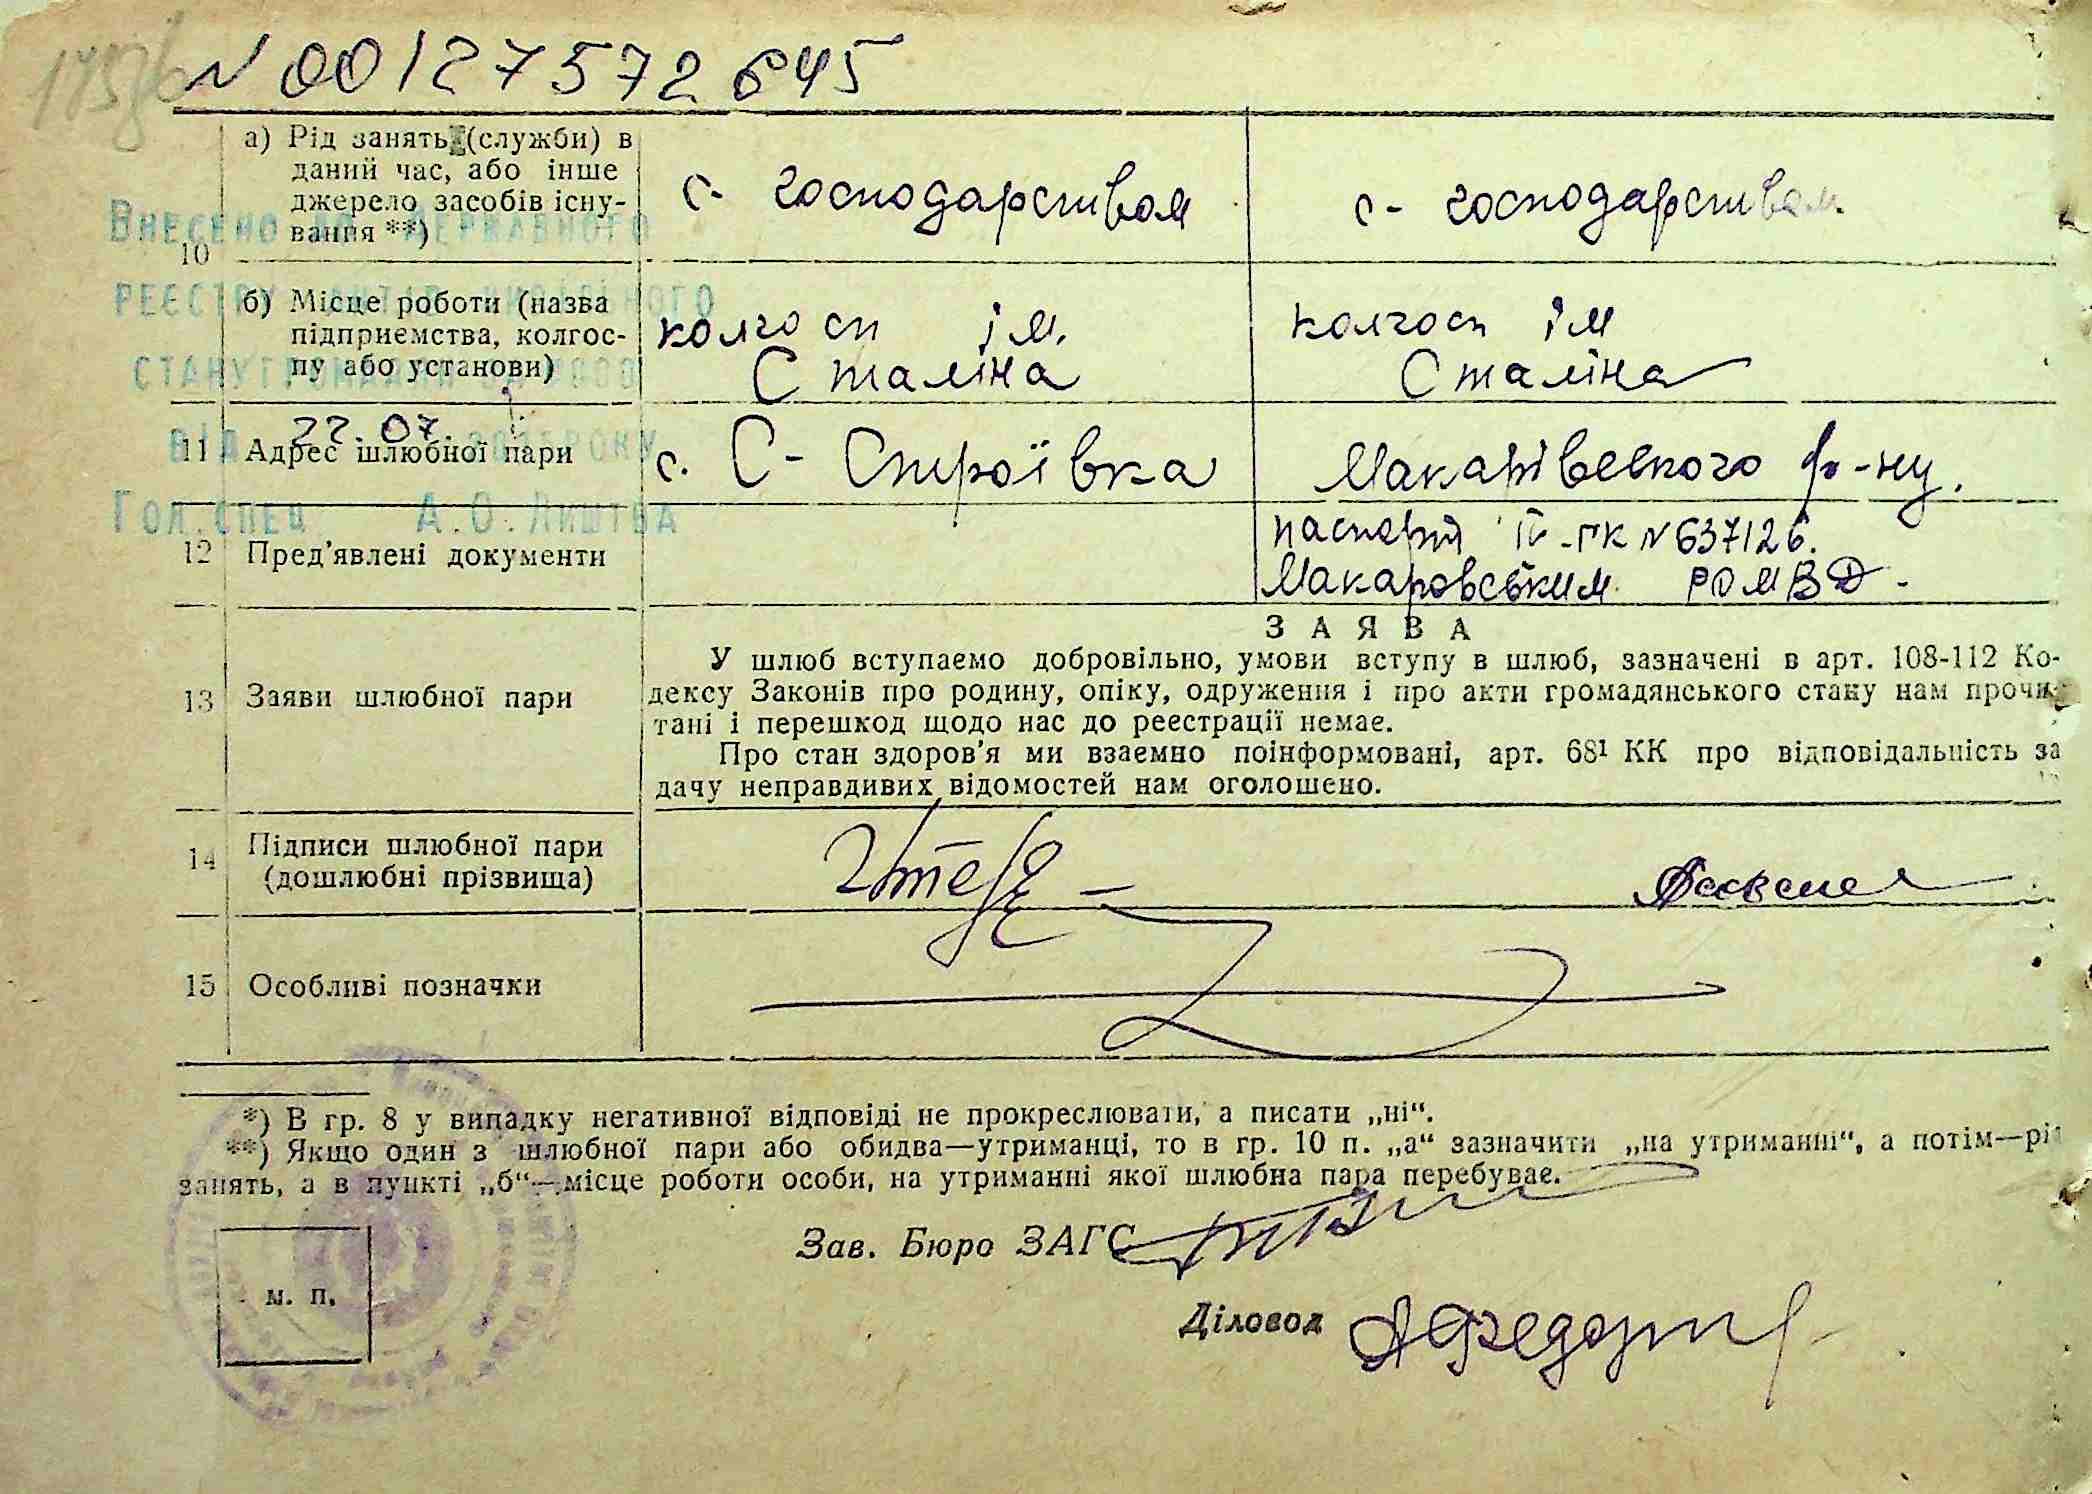 N 00127572645
а) Рід занять (служби) в
даний час, або інше
джерело засобів існу-
вання **)
с- господарством
с- господарством
10
б) Місце роботи (назва
підприємства, колгос-
пу або установи)
колгосп ім.
Сталіна
колгосп ім
Сталіна
ВНЕСЕНО ДО ДЕРЖАВНОГО
РЕЄСТРУ АКТІВ ЦИВІЛЬНОГО
СТАНУ ГРОМАДЯН ЗА
22.07.
ВІД РОКУ
ГОЛ.СПЕЦ А.О.ЛИШТВА
11 Адрес шлюбної пари
с. С- Строївка Макарівского р-ну.
12 Пред'явлені документи
паспорт ІV-ГК N 637126.
Макаровським РОМВД-
13 Заяви шлюбної пари
ЗАЯВА
У шлюб вступаємо добровільно, умови вступу в шлюб, зазначені в арт. 108-112 Ко-
дексу Законів про родину, опіку, одруження і про акти громадянського стану нам прочи-
тані і перешкод щодо нас до реєстрації немає.
Про стан здоров'я ми взаємно поінформовані, арт. 68¹ КК про відповідальність за
дачу неправдивих відомостей нам оголошено.
14 Підписи шлюбної пари
(дошлюбні прізвища)
15 Особливі позначки
*) В гр. 8 у випадку негативної відповіді не прокреслювати, а писати „ні“.
**) Якщо один з шлюбної пари або обидва—утриманці, то в гр. 10 п. „а“ зазначити „на утриманні“, а потім—рід
занять, а в пункті „б“—місце роботи особи, на утриманні якої шлюбна пара перебуває.
Зав. Бюро ЗАГС
Діловод
м. п.